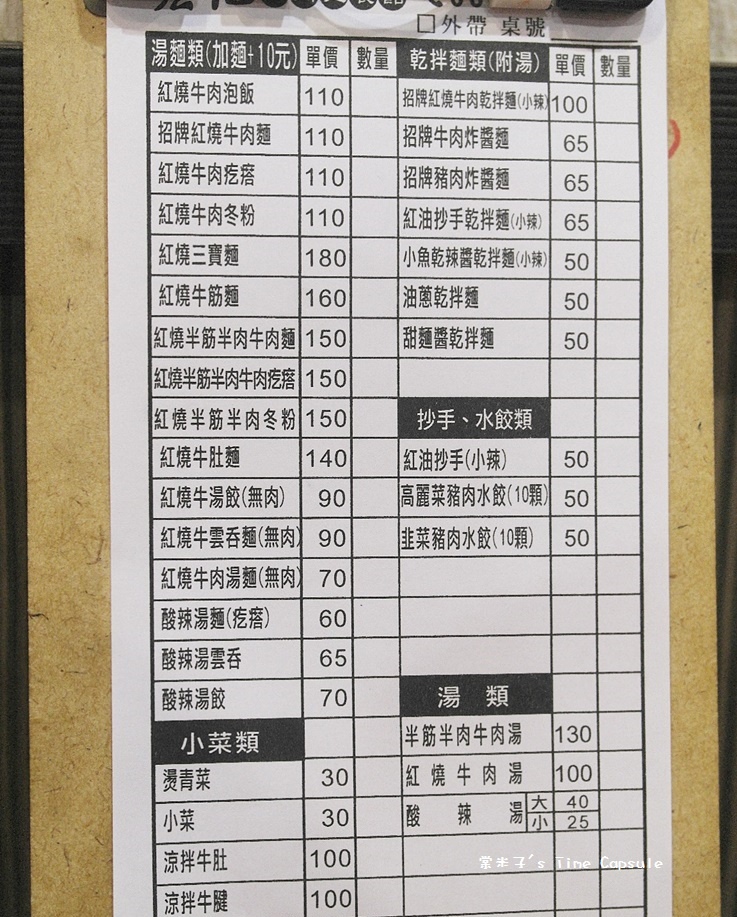 □外帶 桌號
湯麵類(加麵+10元) 單價 數量
紅燒牛肉泡飯 110
招牌紅燒牛肉麵 110
紅燒牛肉疙瘩 110
紅燒牛肉冬粉 110
紅燒三寶麵 180
紅燒牛筋麵 160
紅燒半筋半肉牛肉麵 150
紅燒半筋半肉牛肉疙瘩 150
紅燒半筋半肉冬粉 150
紅燒牛肚麵 140
紅燒牛湯餃(無肉) 90
紅燒牛雲吞麵(無肉) 90
紅燒牛肉湯麵(無肉) 70
酸辣湯麵(疙瘩) 60
酸辣湯雲吞 65
酸辣湯餃 70
小菜類
燙青菜 30
小菜 30
涼拌牛肚 100
涼拌牛腱 100
乾拌麵類(附湯) 單價 數量
招牌紅燒牛肉乾拌麵(小辣) 100
招牌牛肉炸醬麵 65
招牌豬肉炸醬麵 65
紅油抄手乾拌麵(小辣) 65
小魚乾辣醬乾拌麵(小辣) 50
油蔥乾拌麵 50
甜麵醬乾拌麵 50
抄手、水餃類
紅油抄手(小辣) 50
高麗菜豬肉水餃(10顆) 50
韭菜豬肉水餃(10顆) 50
湯 類
半筋半肉牛肉湯 130
紅燒牛肉湯 100
酸辣湯 大 40
小 25
掌米子's Time Capsule